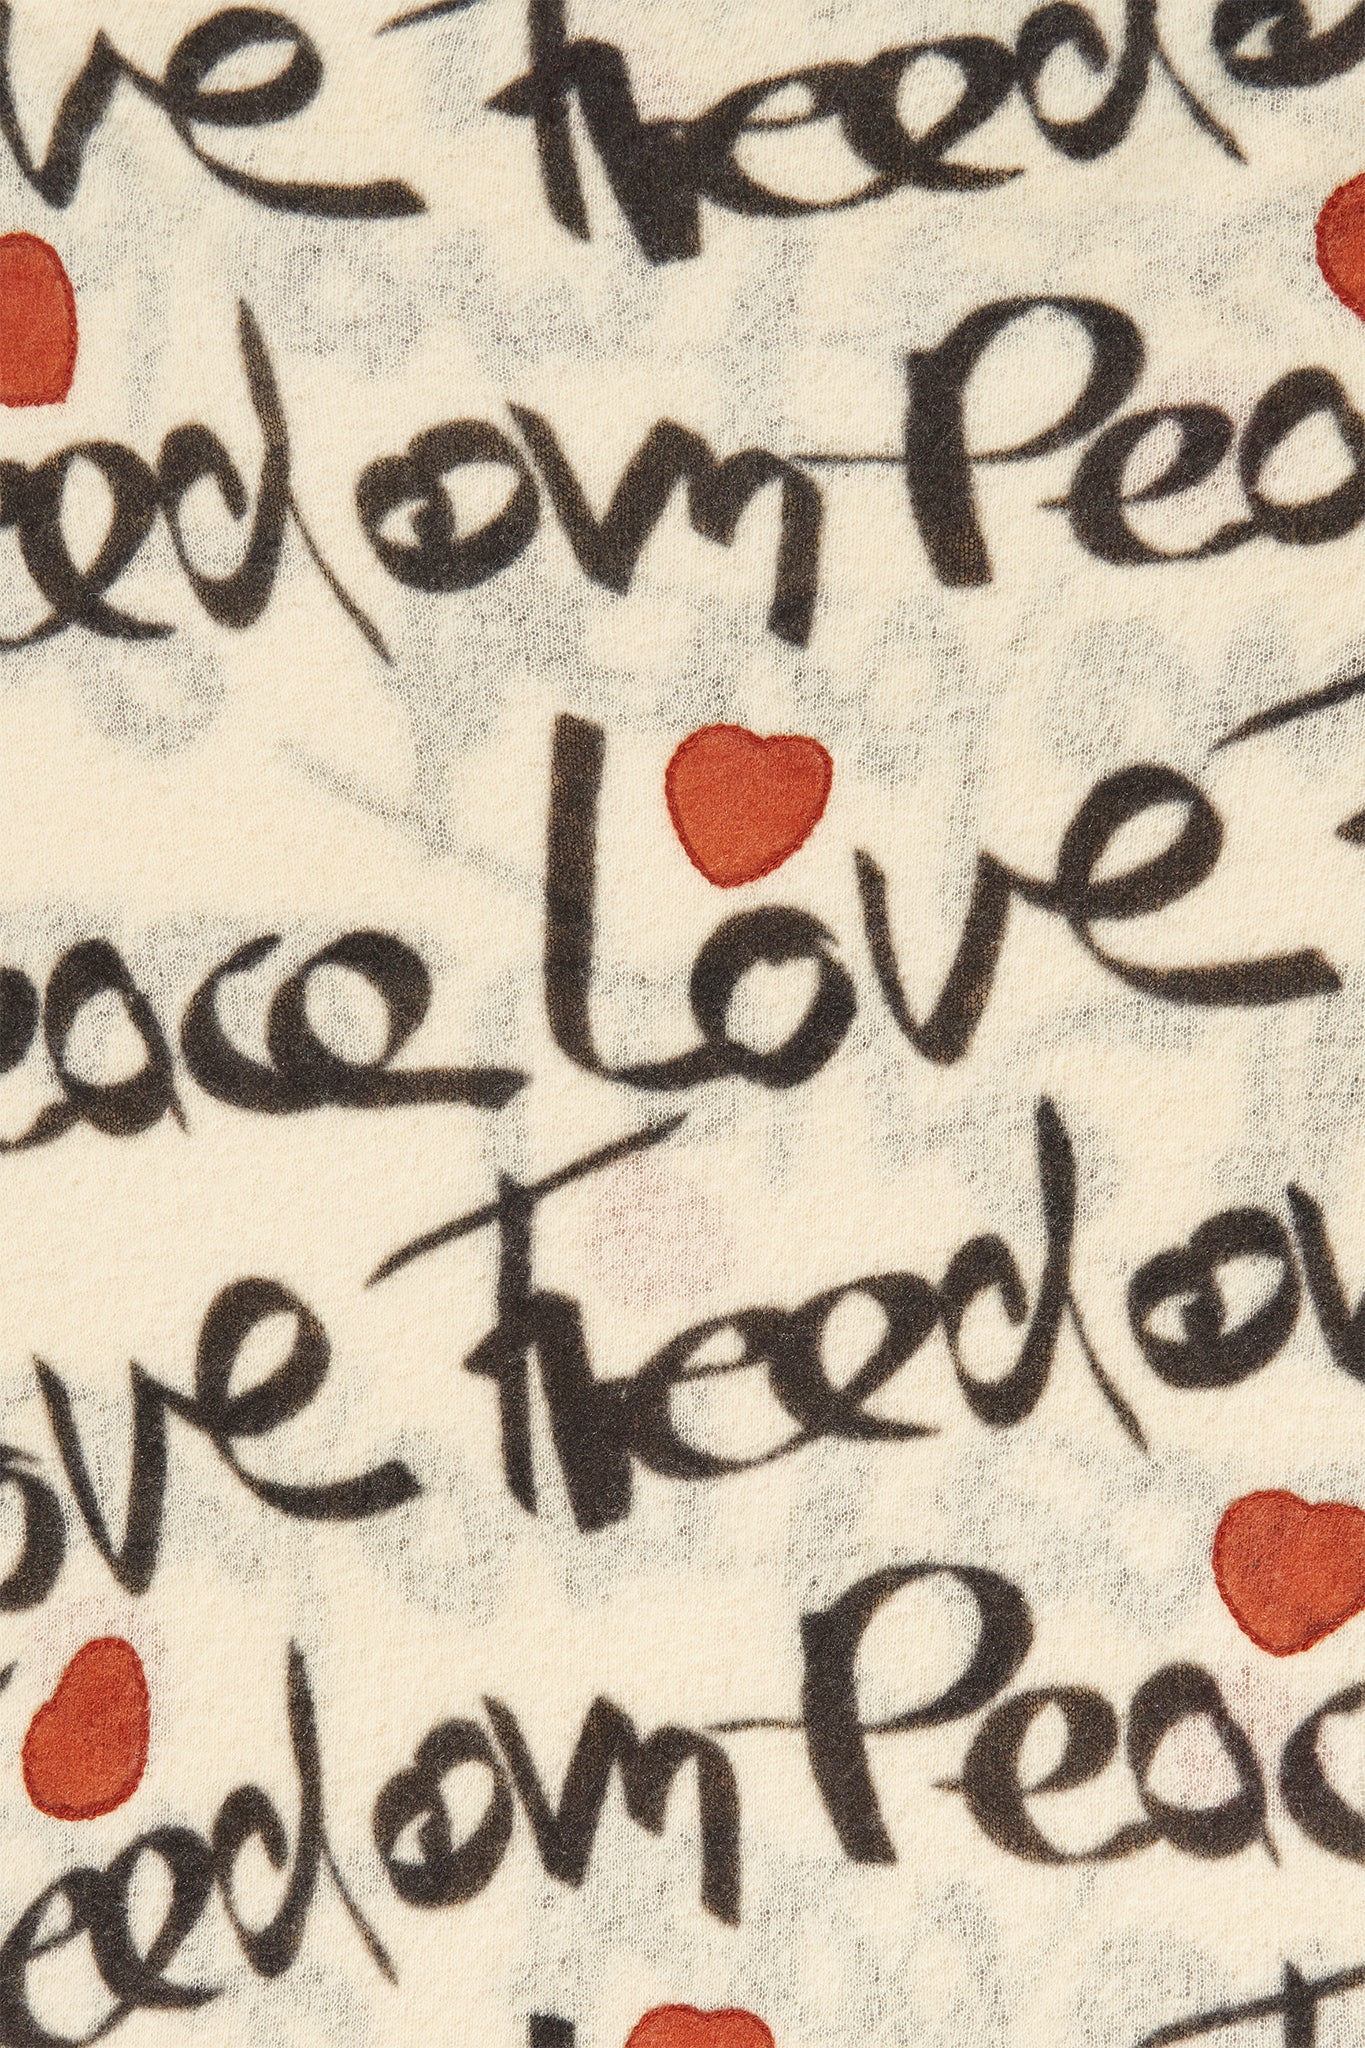 ve Freedo
eedom Pea
eace Love
ove Freedom
eedom Peac